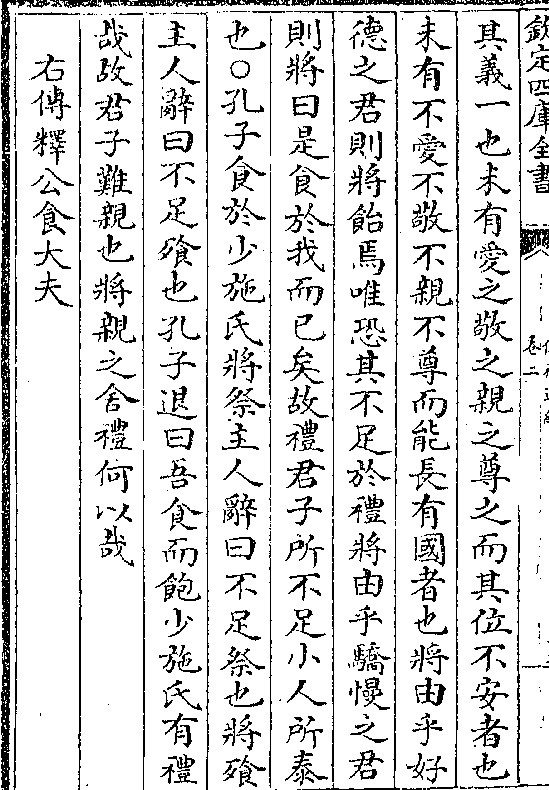 欽定四庫全書
卷二
其義一也未有愛之敬之親之尊之而其位不安者也
未有不愛不敬不親不尊而能長有國者也將由乎好
德之君則將飴焉唯恐其不足於禮將由乎驕慢之君
則將曰是食於我而已矣故禮君子所不足小人所泰
也○孔子食於少施氏將祭主人辭曰不足祭也將飱
主人辭曰不足飱也孔子退曰吾食而飽少施氏有禮
哉故君子難親也將親之舍禮何以哉
右傳釋公食大夫